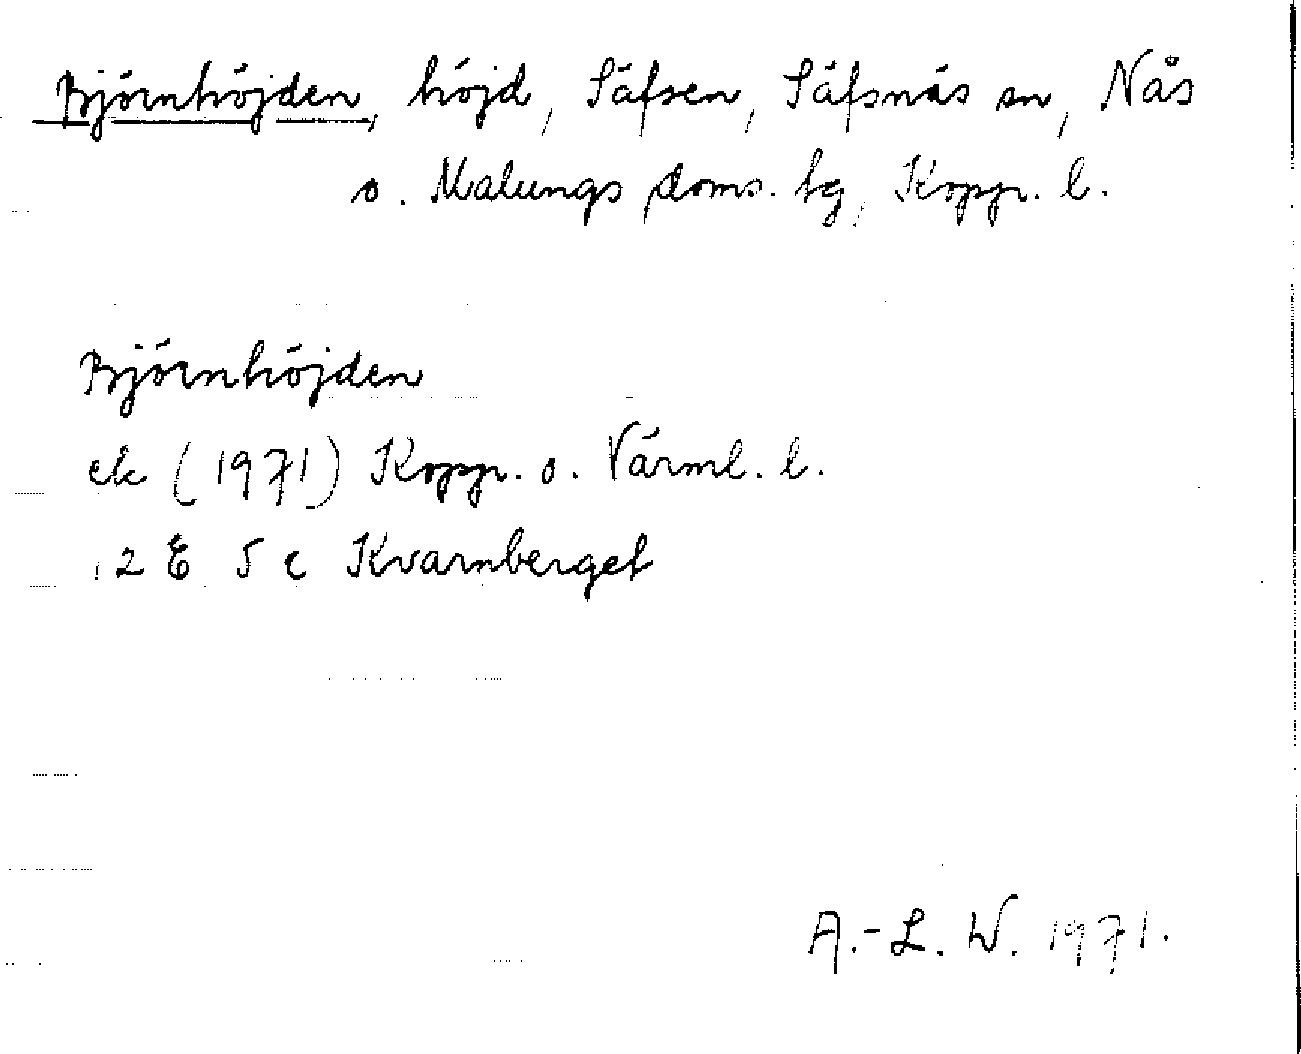 Björnhöjden, höjd, Säfsen, Säfsnäs sn, Nås
o. Malungs doms. hg, Kopp. l.
Björnhöjden
ek (1971) Kopp. o. Värml. l.
12 E 5 c Kvarnberget
A.-L. W. 1971.